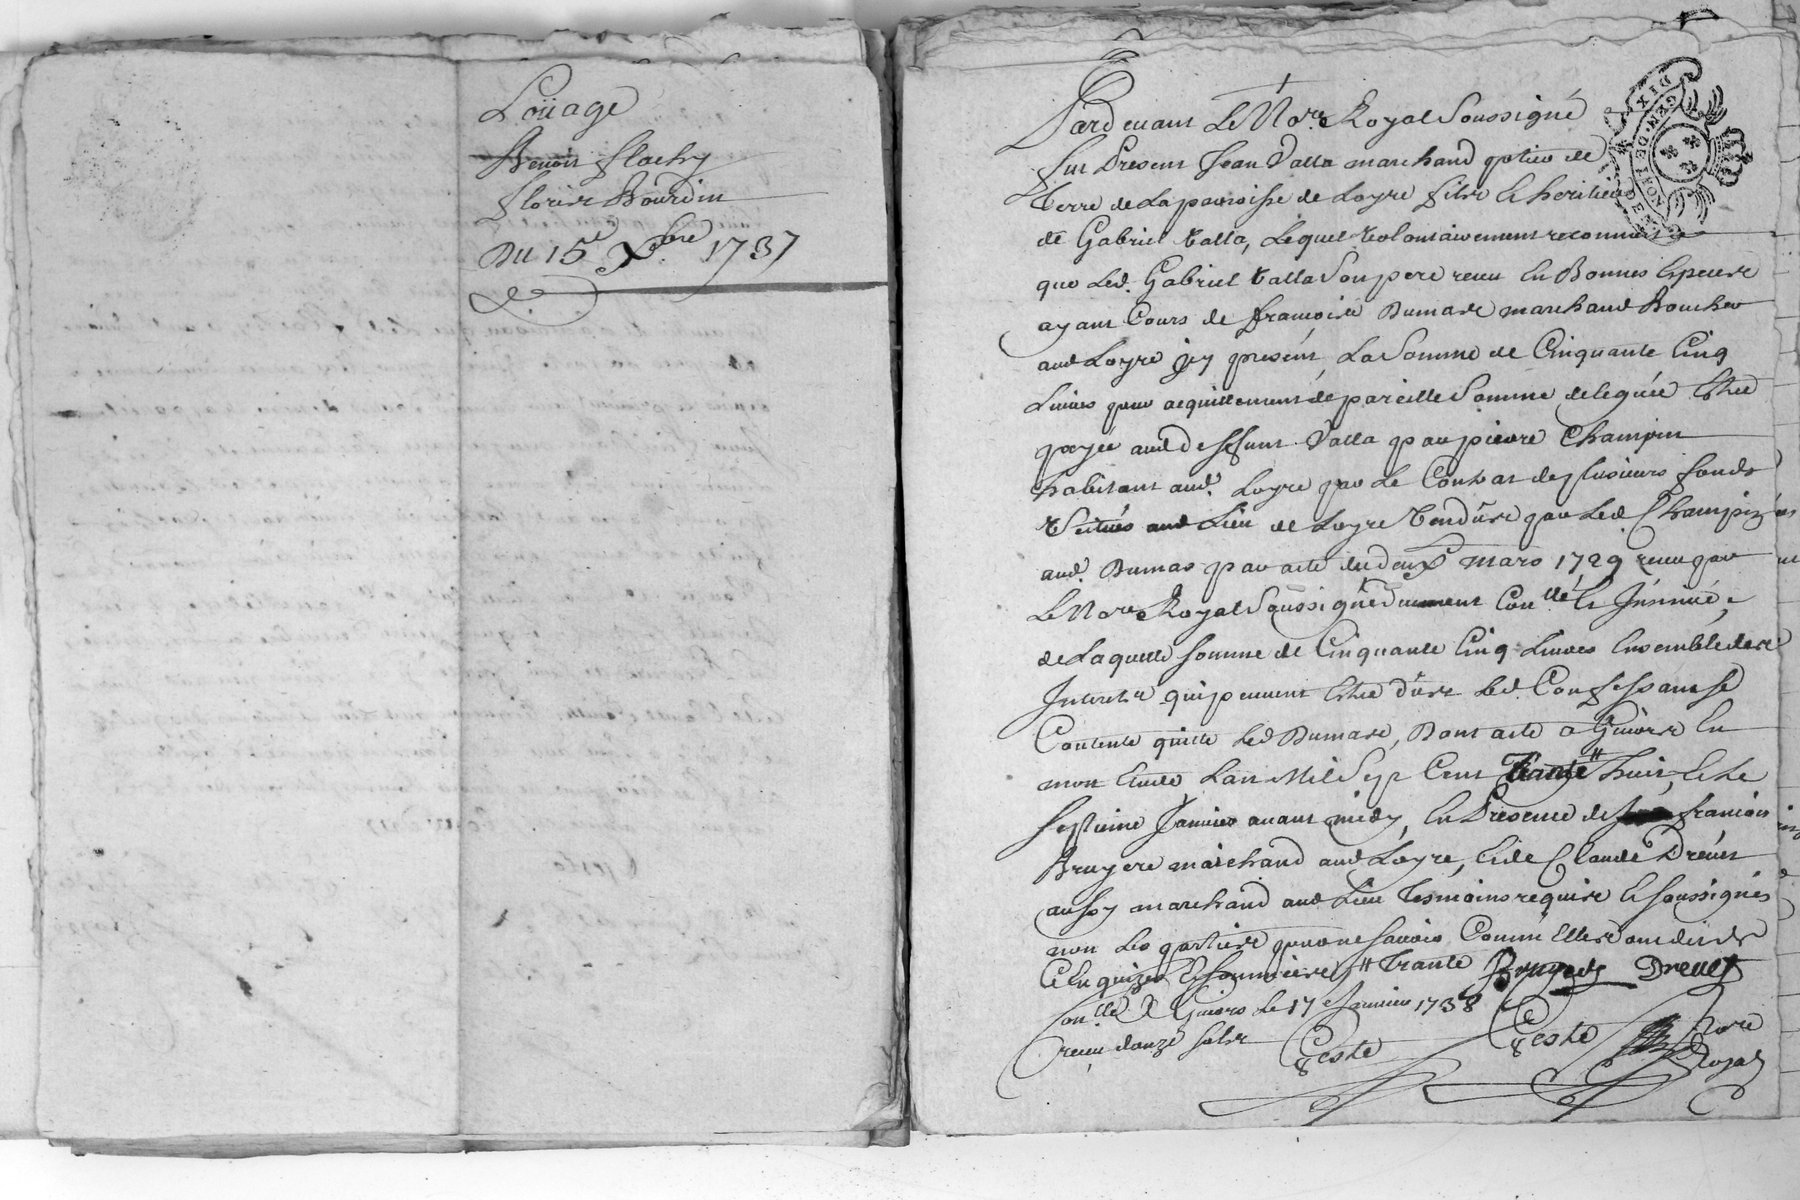 Loüage
Benoit flachy
florier Bourdin
Du 15e Xbre. 1737
Pardevant Le Nore. Royal Soussigné
fut Present Jean Valla marchand potier de
terre de La paroisse de Loyre fils et heritier
de Gabriel Valla, Lequel Volontairement reconnoit
que Led. Gabriel Valla Son pere receu En Bonnes Especes
ayant Cours de françois Dumas marchand Boucher
aud Loyre jcy present, La Somme de Cinquante Cinq
Livres pour acquittement de pareille Somme deleguée Estre
payée aud deffunt Valla par pierre Champin
habitant aud. Loyre par Le Contrat de plusieurs fonds
Scitués aud Lieu de Loyre Vendus par Led Champin
aud. Dumas par acte du deux mars 1729 receu par
Le Nore Royal Soussigné Duement Conllé Et Jnsinué,
de Laquelle somme de Cinquante Cinq Livres Ensemble des
Interets qui peuvent Estre dus Led. Confessant se
Contente quitte Led Dumas, Dont acte a Givors En
mon Etude, Lan Mil Sept Cent trante # huit, Et Le
septieme Janvier avant midy, En Presence de françois
Bruyere marchand aud Loyre, Et de Claude Drevet
aussy marchand aud Lieu Tesmoins requis Et soussignés
non Les parties pour ne savoir Comme Elles ont dit de
Ce Enquises Et sommées # Trante Bruyere Drevet
Conllé A Givors Le 17 Janvier 1738
receu douze sols
Geste
Geste
Nore
Royal
DIX
GEN. DE LYON
DEN